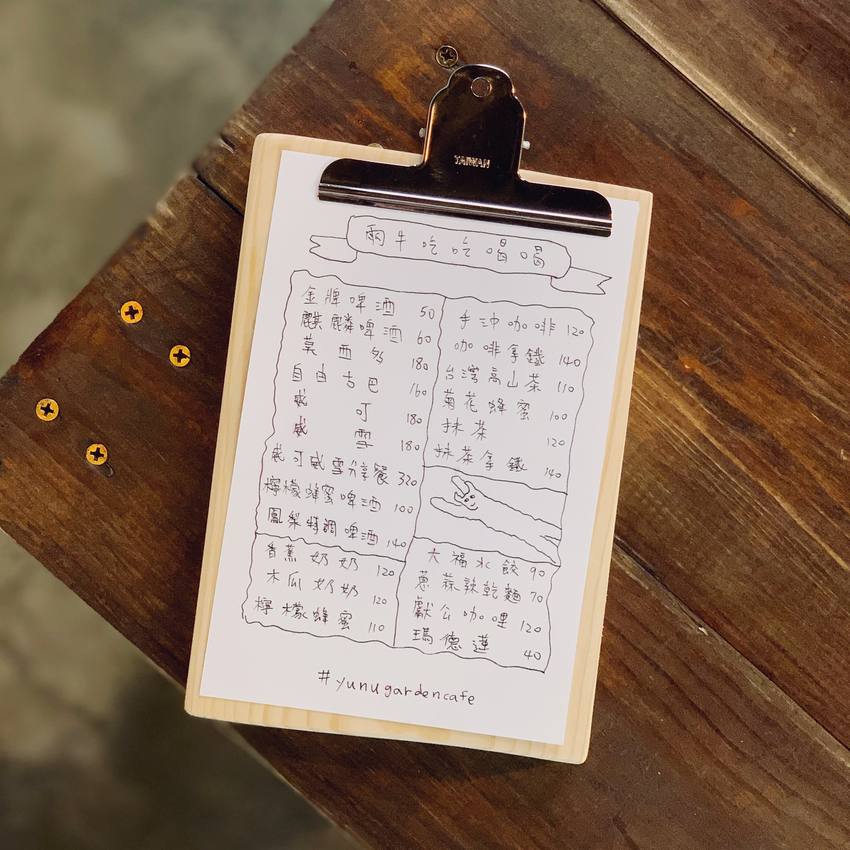 TAIWAN
兩牛吃吃喝喝
金牌啤酒 50
麒麟啤酒 60
莫西多 180
自由古巴 160
威可 180
威雪 180
威可威雪分享餐 320
檸檬蜂蜜啤酒 100
鳳梨特調啤酒 140
香蕉奶奶 120
木瓜奶奶 120
檸檬蜂蜜 110
手沖咖啡 120
咖啡拿鐵 140
台灣高山茶 110
菊花蜂蜜 100
抹茶 120
抹茶拿鐵 140
大福水餃 90
蔥蒜辣乾麵 70
獻公咖哩 120
瑪德蓮 40
#yunugardencafe